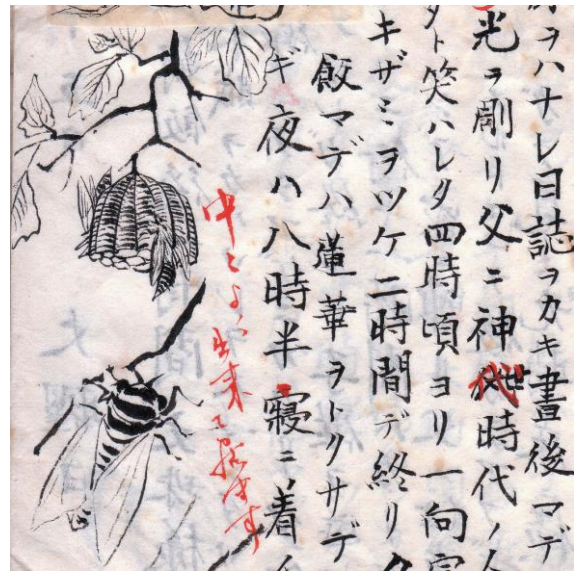 ヲハナレ日誌ヲカキ晝後マデ
光ヲ剛リ父ニ神代時代ノ人
ト笑ハレタ四時頃ヨリ一向
キザミヲツケ二時間デ終リ
飯マデハ蓮華ヲトリサデ
ギ夜ハ八時半寝ニ着
中々よい出来